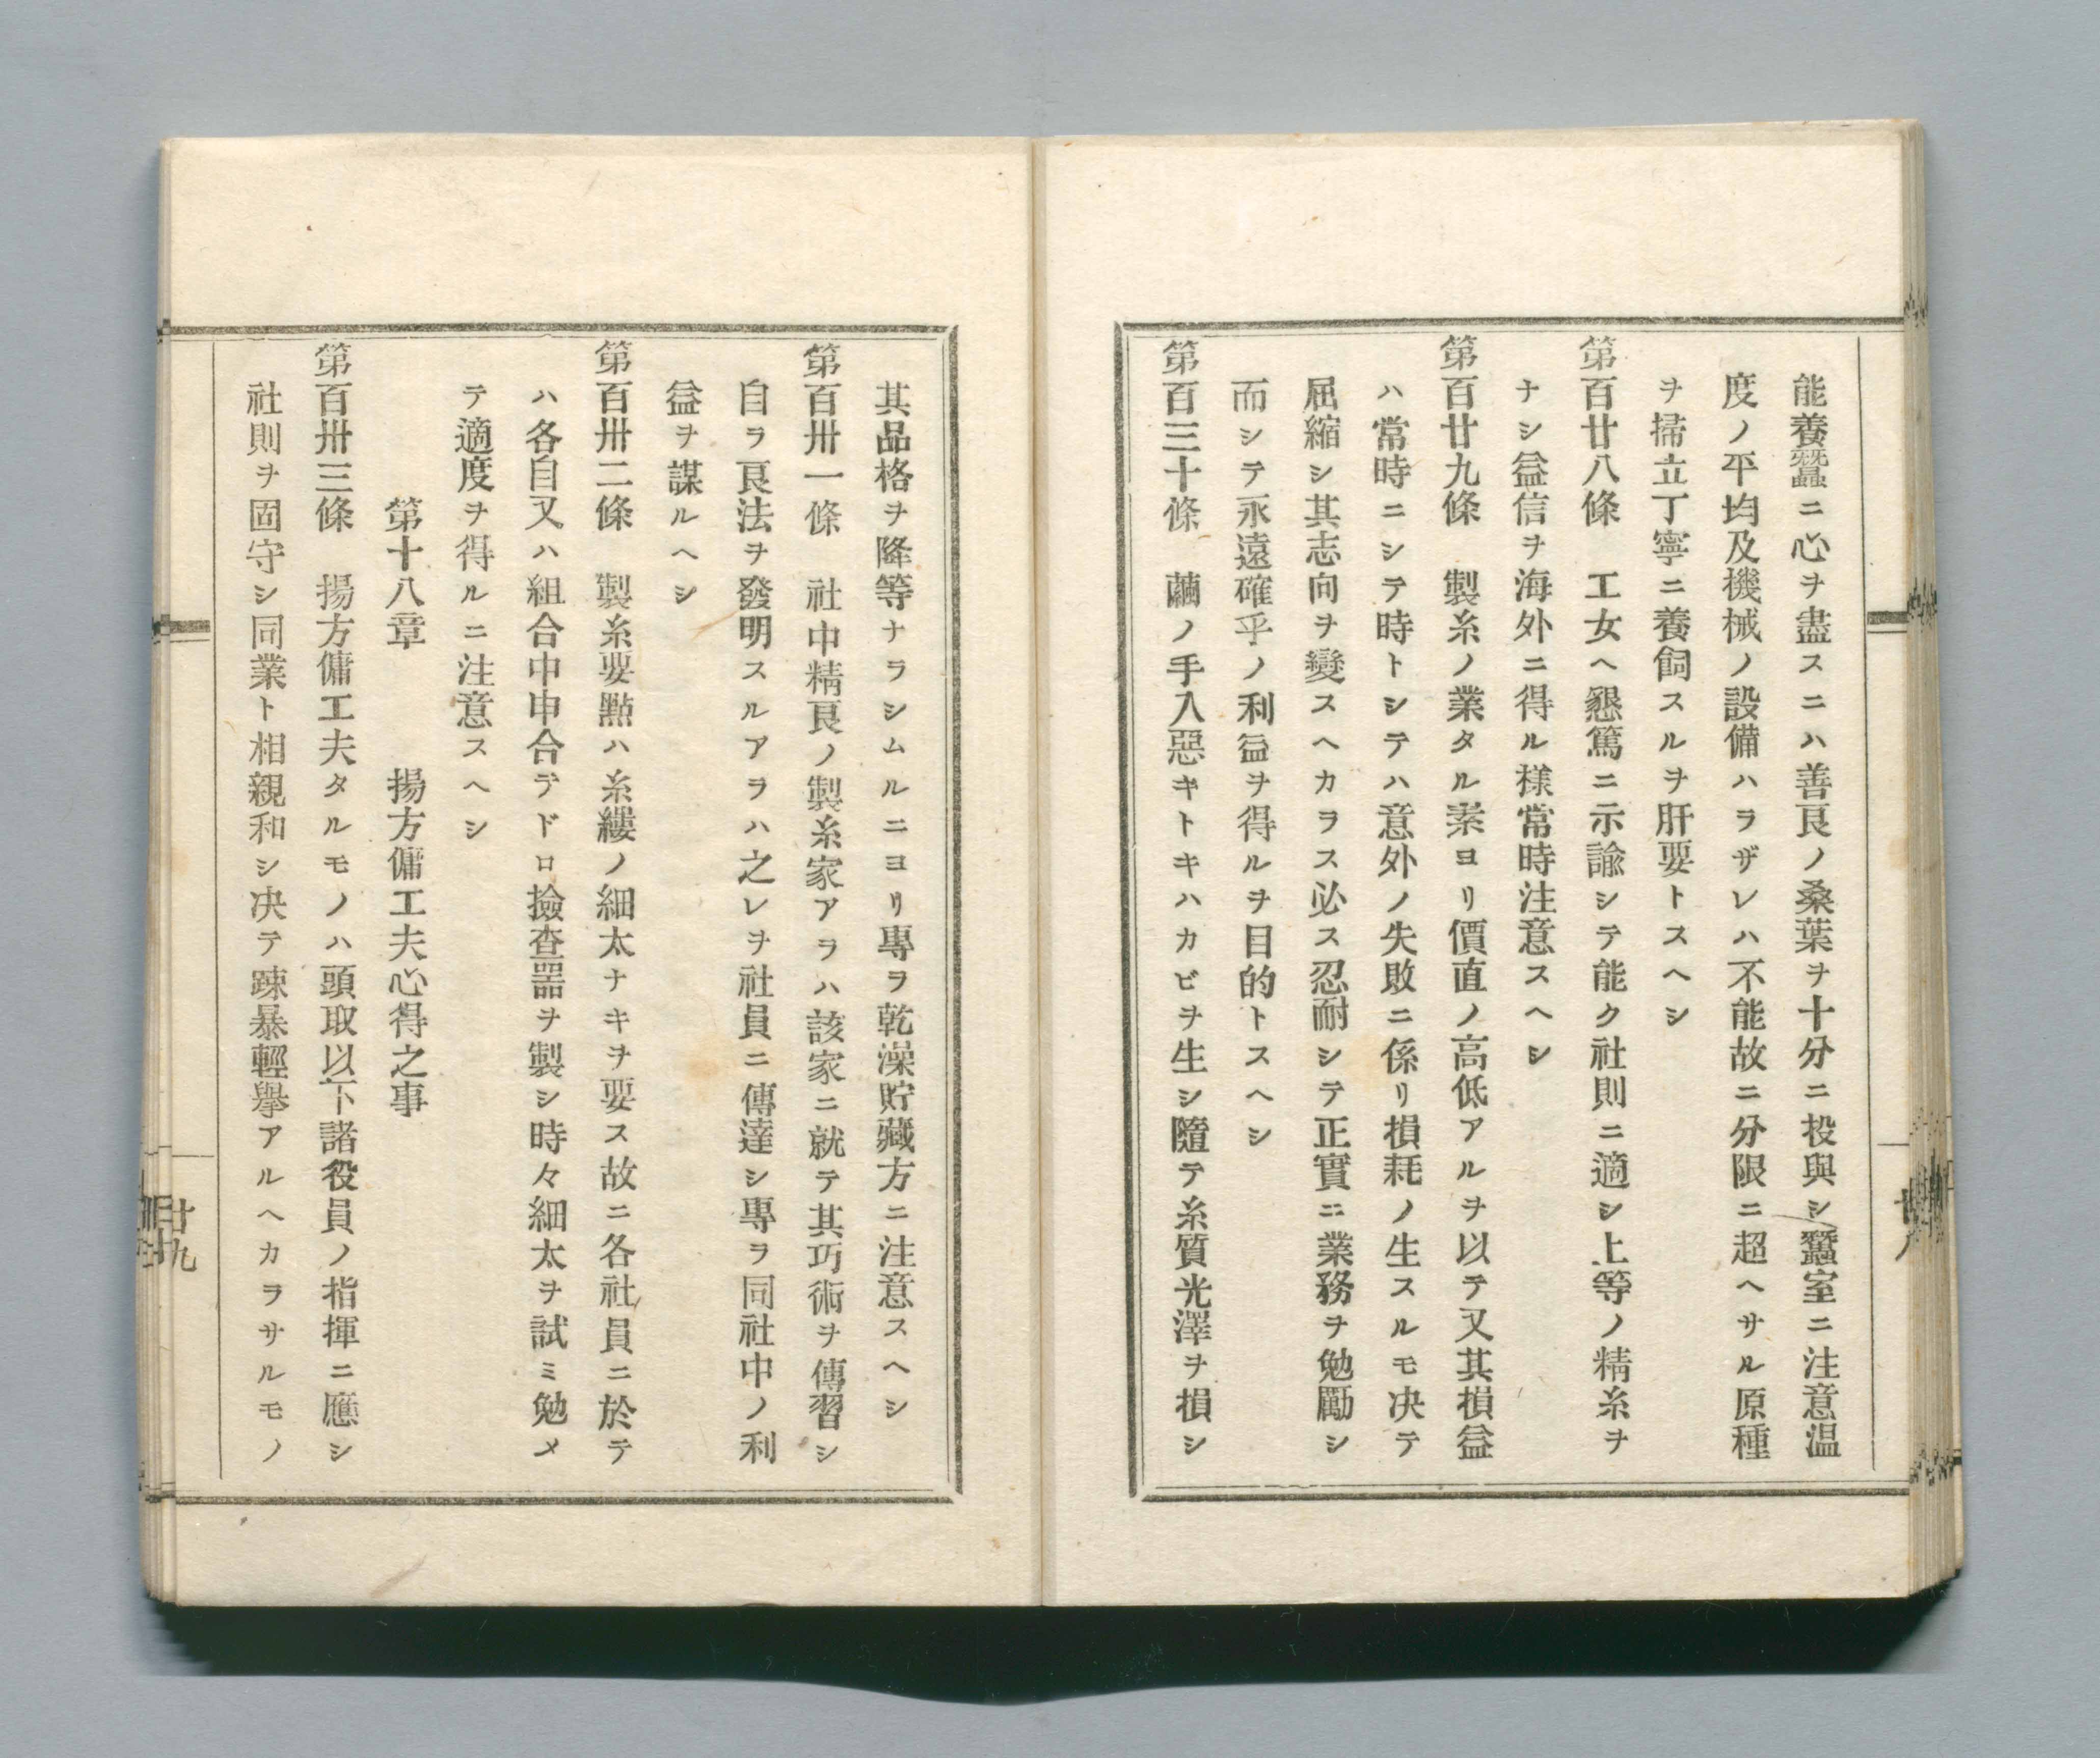 能養蠶ニ心ヲ盡スニハ善良ノ桑葉ヲ十分ニ投與シ蠶室ニ注意温
度ノ平均及機械ノ設備ハラザレハ不能故ニ分限ニ超ヘサル原種
ヲ掃立丁寧ニ養飼スルヲ肝要トスヘシ
第百廿八條　工女ヘ懇篤ニ示諭シテ能ク社則ニ適シ上等ノ精糸ヲ
ナシ益信ヲ海外ニ得ル樣常時注意スヘシ
第百廿九條　製糸ノ業タル素ヨリ價直ノ高低アルヲ以テ又其損益
ハ常時ニシテ時トシテハ意外ノ失敗ニ係リ損耗ノ生スルモ决テ
屈縮シ其志向ヲ變スヘカラス必ス忍耐シテ正實ニ業務ヲ勉勵シ
而シテ永遠確乎ノ利益ヲ得ルヲ目的トスヘシ
第百三十條　繭ノ手入惡キトキハカビヲ生シ隨テ糸質光澤ヲ損シ
其品格ヲ降等ナラシムルニヨリ專ラ乾澡貯藏方ニ注意スヘシ
第百卅一條　社中精良ノ製糸家アラハ該家ニ就テ其巧術ヲ傳習シ
自ラ良法ヲ發明スルアラハ之レヲ社員ニ傳達シ專ラ同社中ノ利
益ヲ謀ルヘシ
第百卅二條　製糸要點ハ糸縷ノ細太ナキヲ要ス故ニ各社員ニ於テ
ハ各自又ハ組合中申合テドロ撿查噐ヲ製シ時々細太ヲ試ミ勉メ
テ適度ヲ得ルニ注意スヘシ
第十八章　　揚方傭工夫心得之事
第百卅三條　揚方傭工夫タルモノハ頭取以下諸役員ノ指揮ニ應シ
社則ヲ固守シ同業ト相親和シ决テ踈暴輕擧アルヘカラサルモノ
廿九